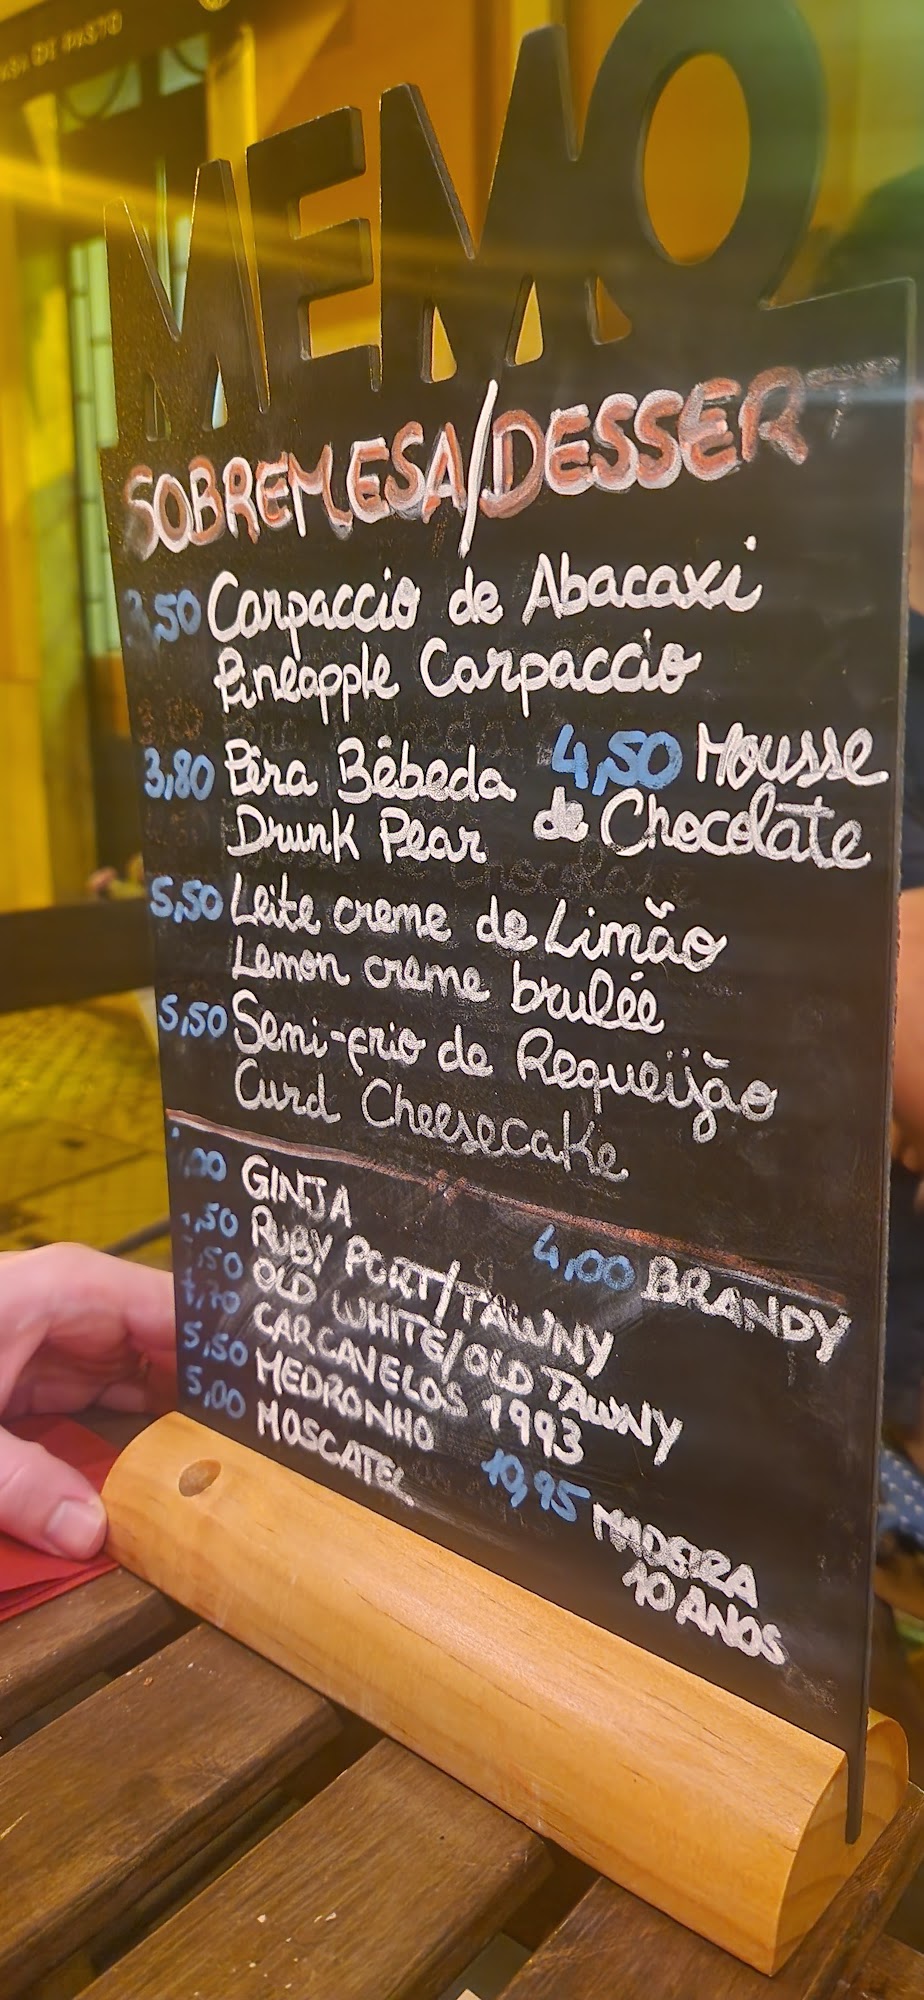 CASA DE PASTO
MEMO
SOBREMESA/DESSERT
3,50 Carpaccio de Abacaxi
Pineapple Carpaccio
3,80 Pêra Bêbeda
Drunk Pear
4,50 Mousse
de Chocolate
5,50 Leite creme de Limão
Lemon creme brulée
5,50 Semi-frio de Requeijão
Curd Cheesecake
GINJA
4,00 BRANDY
RUBY PORT/TAWNY
OLD WHITE/OLD TAWNY
CARCAVELOS 1993
5,50 MEDRONHO
5,00 MOSCATEL
10,95 MADEIRA
10 ANOS